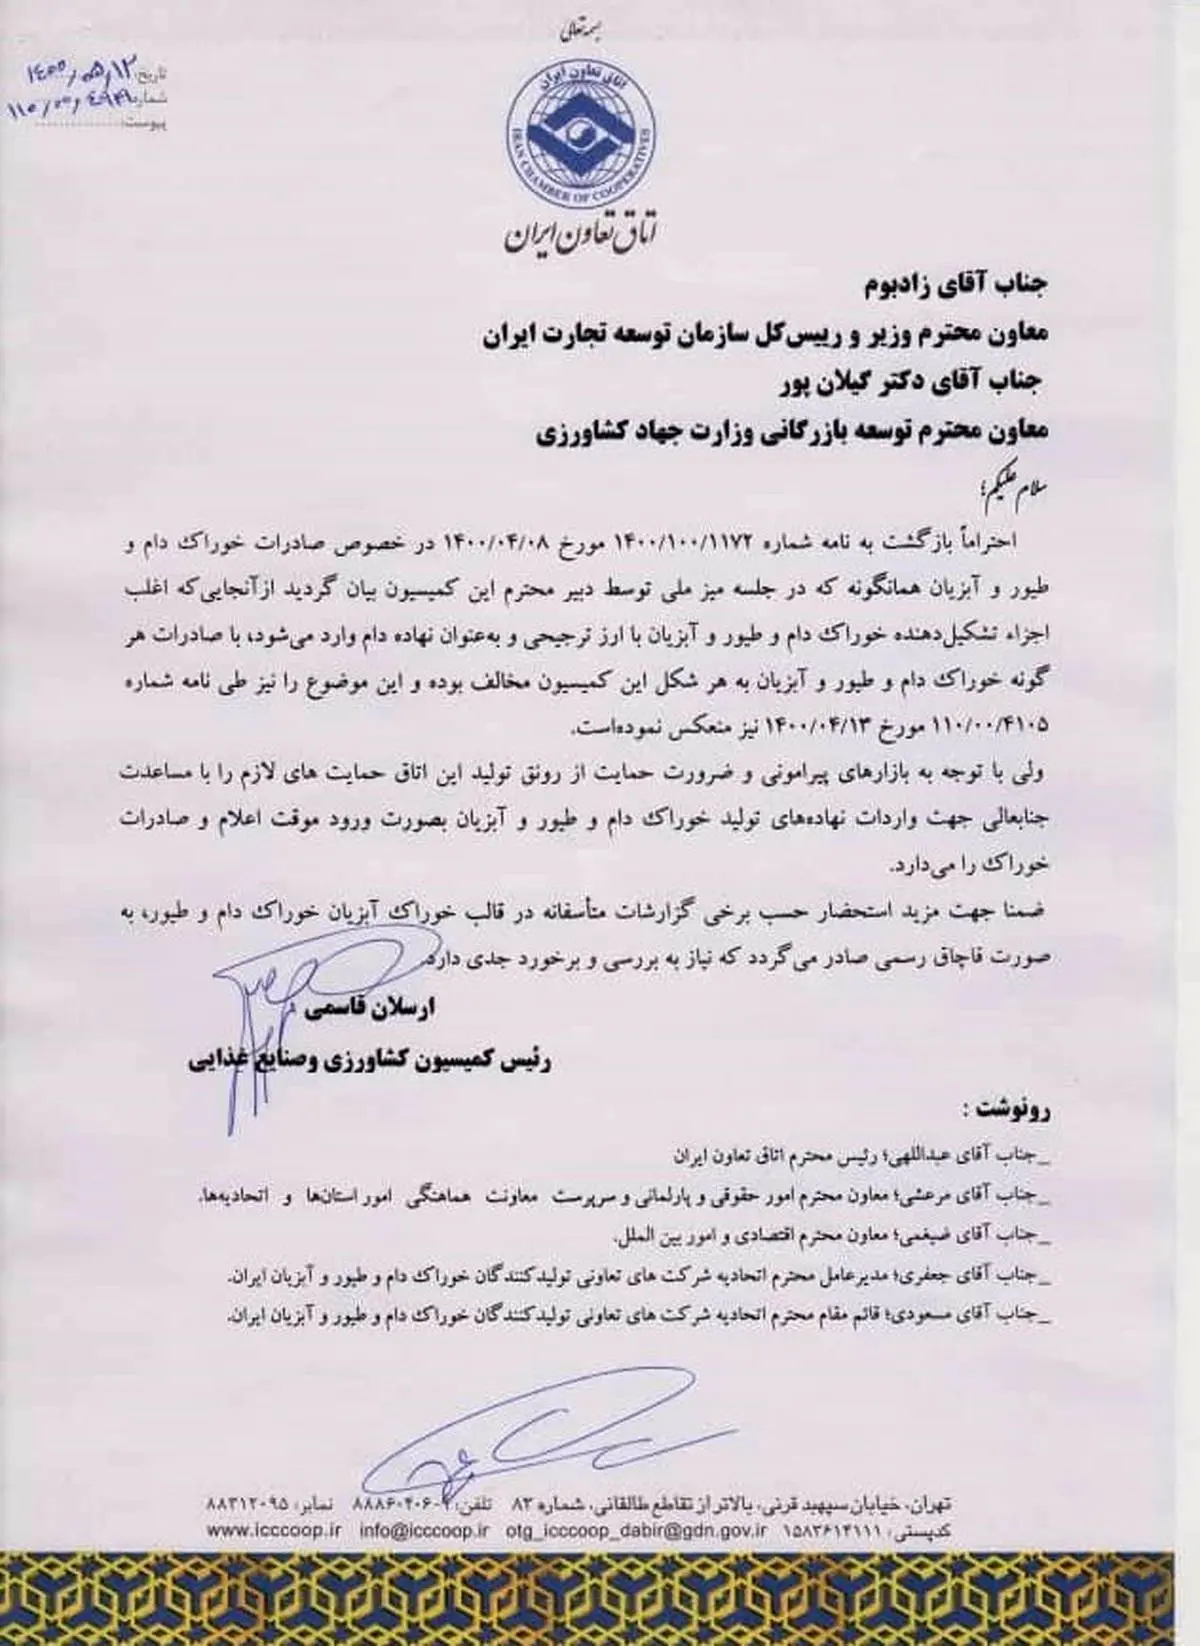 بسمه تعالی
تاریخ: ۱۴۰۰/۰۵/۱۲
شماره:
پیوست:
اتاق تعاون ایران
IRAN CHAMBER OF COOPERATIVES
اتاق تعاون ایران
جناب آقای زادبوم
معاون محترم وزیر و رییس‌کل سازمان توسعه تجارت ایران
جناب آقای دکتر گیلان پور
معاون محترم توسعه بازرگانی وزارت جهاد کشاورزی
سلام علیکم؛
احتراماً بازگشت به نامه شماره ۱۴۰۰/۱۰۰/۱۱۷۲ مورخ ۱۴۰۰/۰۴/۰۸ در خصوص صادرات خوراک دام و
طیور و آبزیان همانگونه که در جلسه میز ملی توسط دبیر محترم این کمیسیون بیان گردید ازآنجایی‌که اغلب
اجزاء تشکیل‌دهنده خوراک دام و طیور و آبزیان با ارز ترجیحی و به‌عنوان نهاده دام وارد می‌شود، با صادرات هر
گونه خوراک دام و طیور و آبزیان به هر شکل این کمیسیون مخالف بوده و این موضوع را نیز طی نامه شماره
۱۱۰/۰۰/۴۱۰۵ مورخ ۱۴۰۰/۰۴/۱۳ نیز منعکس نموده‌است.
ولی با توجه به بازارهای پیرامونی و ضرورت حمایت از رونق تولید این اتاق حمایت های لازم را با مساعدت
جنابعالی جهت واردات نهاده‌های تولید خوراک دام و طیور و آبزیان بصورت ورود موقت اعلام و صادرات
خوراک را می‌دارد.
ضمنا جهت مزید استحضار حسب برخی گزارشات متأسفانه در قالب خوراک آبزیان خوراک دام و طیور، به
صورت قاچاق رسمی صادر می‌گردد که نیاز به بررسی و برخورد جدی دارد
ارسلان قاسمی
رئیس کمیسیون کشاورزی وصنایع غذایی
رونوشت :
_جناب آقای عبداللهی؛ رئیس محترم اتاق تعاون ایران
_جناب آقای مرعشی؛ معاون محترم امور حقوقی و پارلمانی و سرپرست معاونت هماهنگی امور استان‌ها و اتحادیه‌ها.
_جناب آقای ضیغمی؛ معاون محترم اقتصادی و امور بین الملل.
_جناب آقای جعفری؛ مدیرعامل محترم اتحادیه شرکت های تعاونی تولیدکنندگان خوراک دام و طیور و آبزیان ایران.
_جناب آقای مسعودی؛ قائم مقام محترم اتحادیه شرکت های تعاونی تولیدکنندگان خوراک دام و طیور و آبزیان ایران.
تهران، خیابان سپهبد قرنی، بالاتر از تقاطع طالقانی، شماره ۸۳ تلفن: ۹-۸۸۸۶۰۴۰۶ نمابر: ۸۸۳۱۲۰۹۵
کدپستی: ۱۵۸۳۶۱۴۱۱۱ otg_icccoop_dabir@gdn.gov.ir info@icccoop.ir www.icccoop.ir